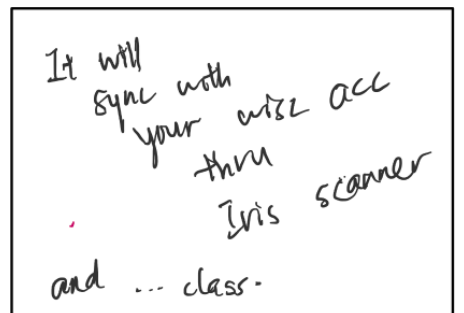 It will
sync with
your wise acc
thru
Iris scanner
and ... class.